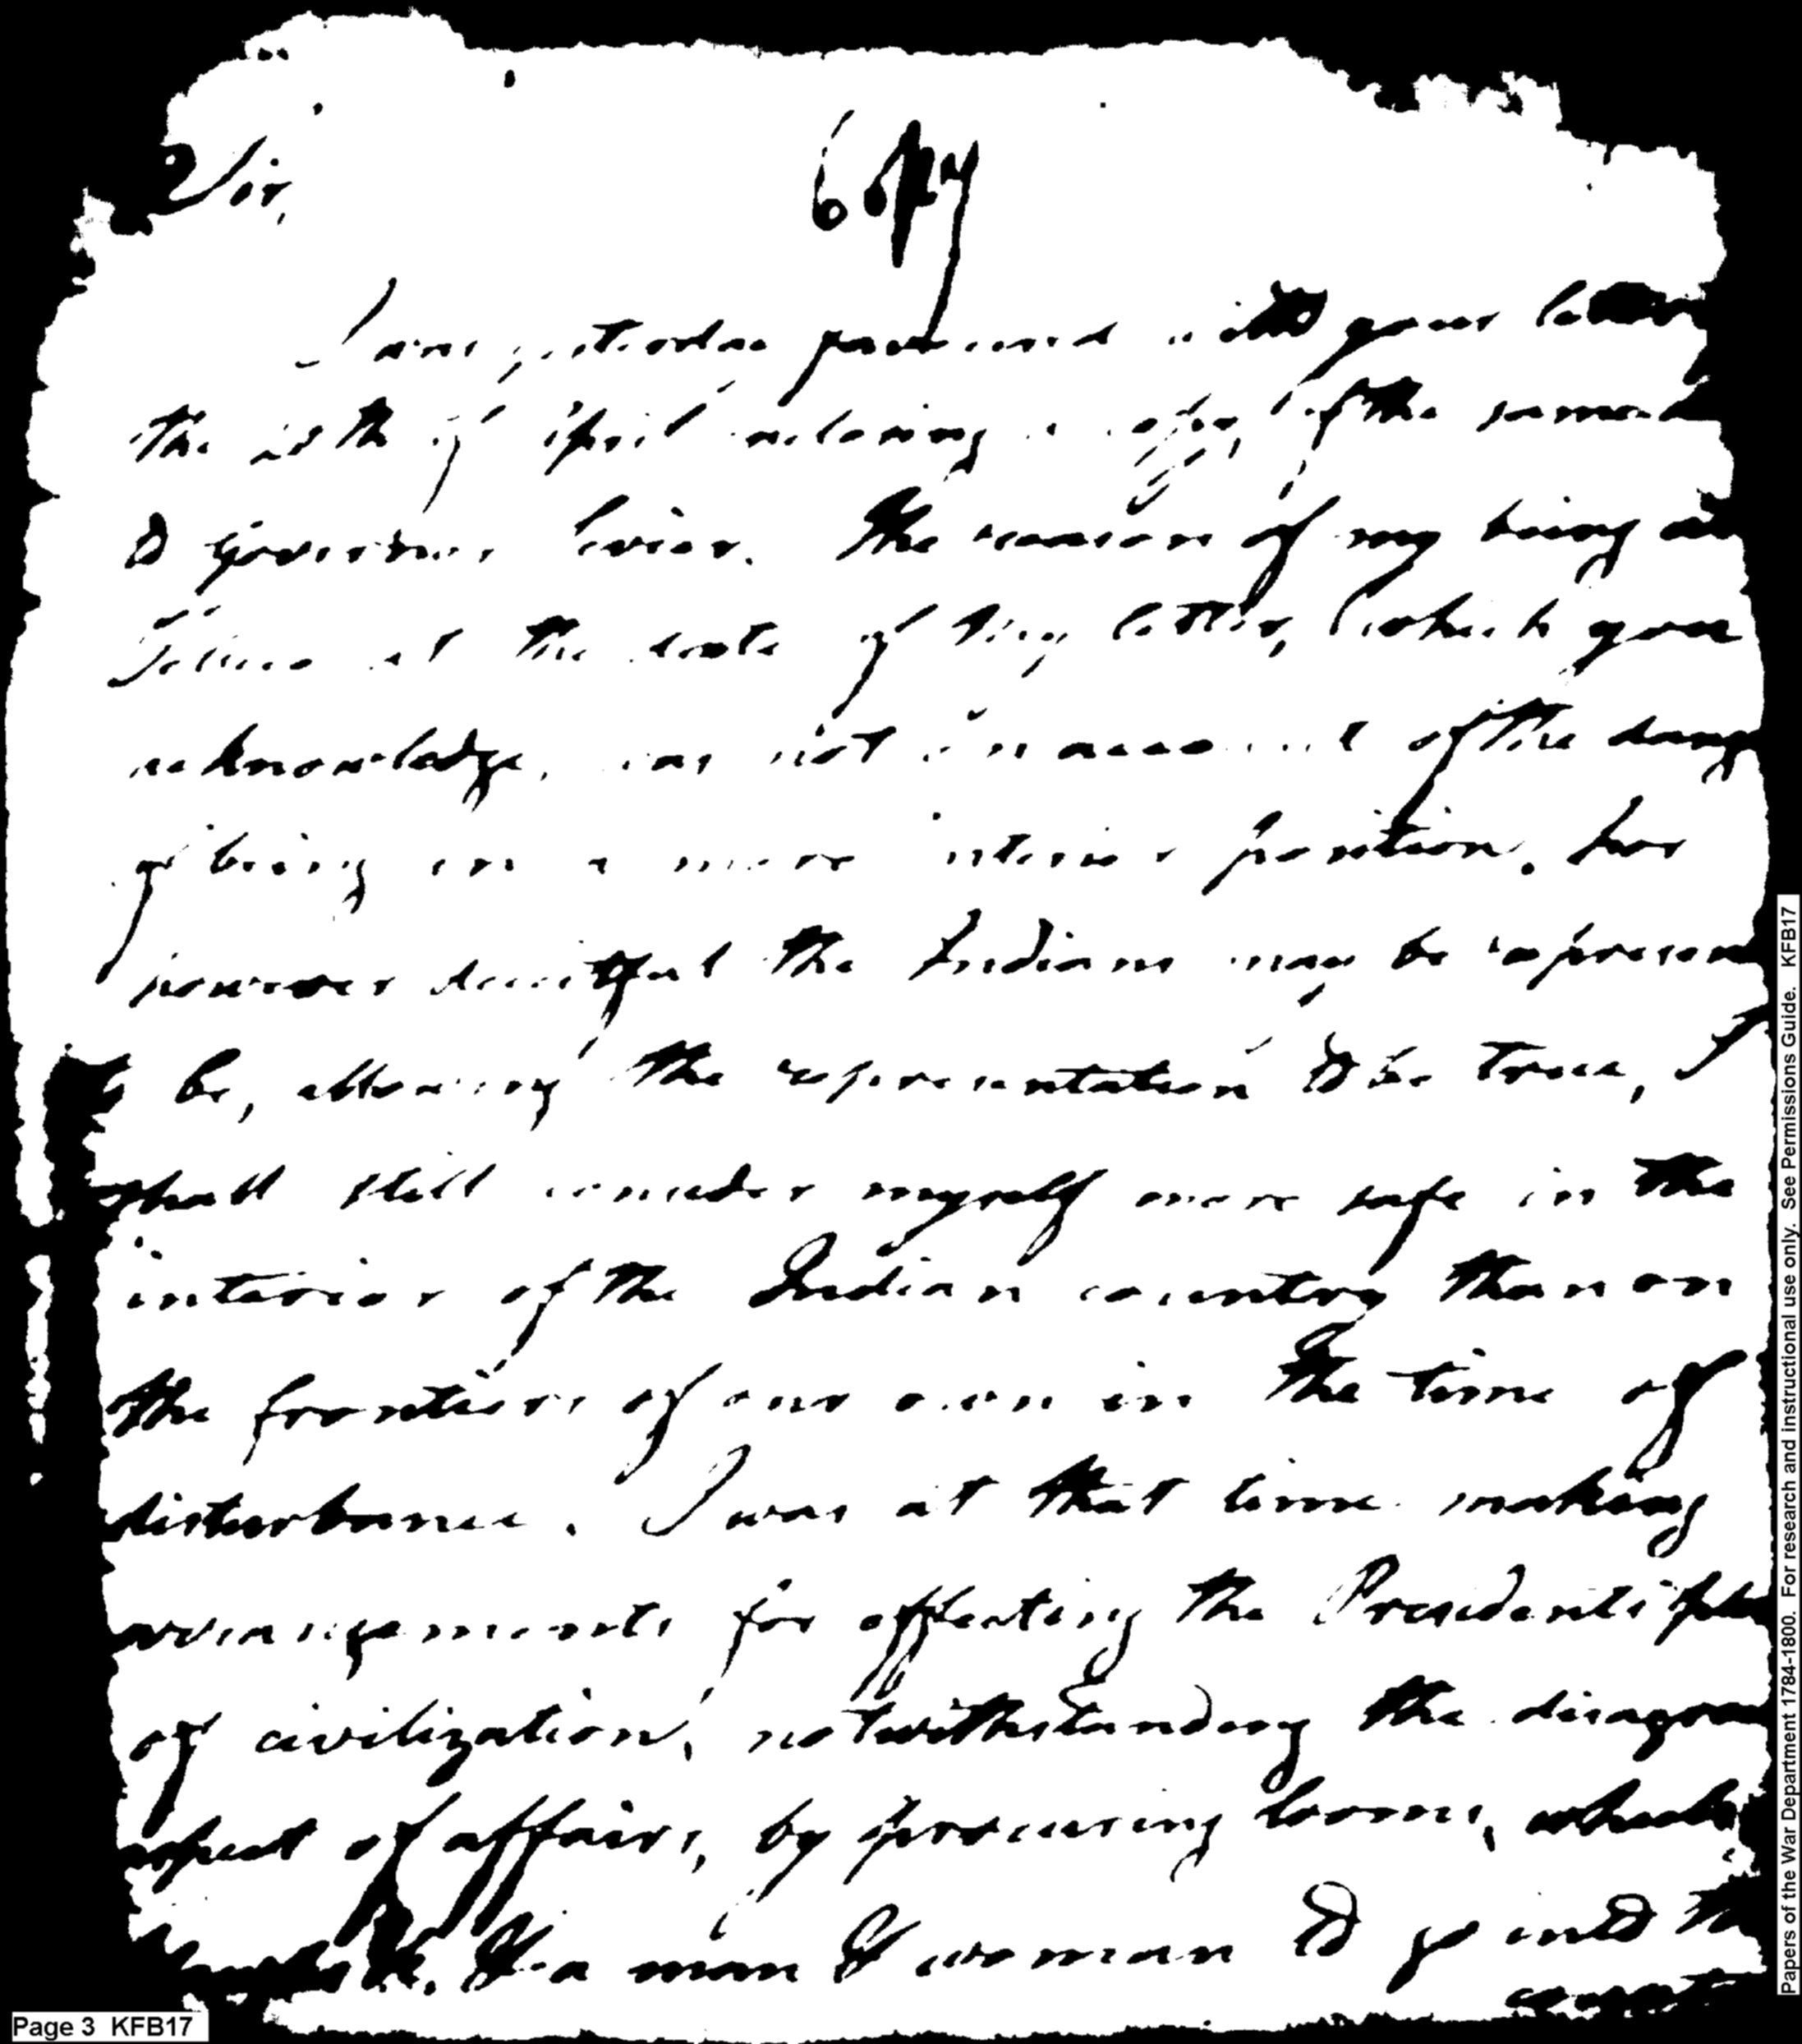 Sir,
Copy
I was yesterday presented with your letter
the 25th of April inclosing a copy of the same
to governor Sevier. The reason of my being in
at the date of my letter, which you
acknowledge, was not on account of the dang
of being in a more interior position. for
however deceitful the Indians may be represen
to be, allowing the representation to be true, I
shall still consider myself more safe in the
interior of the Indian country than on
the frontiers of our own in the time of
disturbance. I was at that time making
arrangements for effecting the Presidents plan
of civilization, notwithstanding the disagre
aspect of affairs, by procuring looms, wheels
a man & woman to go into the
Page 3 KFB17
Papers of the War Department 1784-1800. For research and instructional use only. See Permissions Guide. KFB17